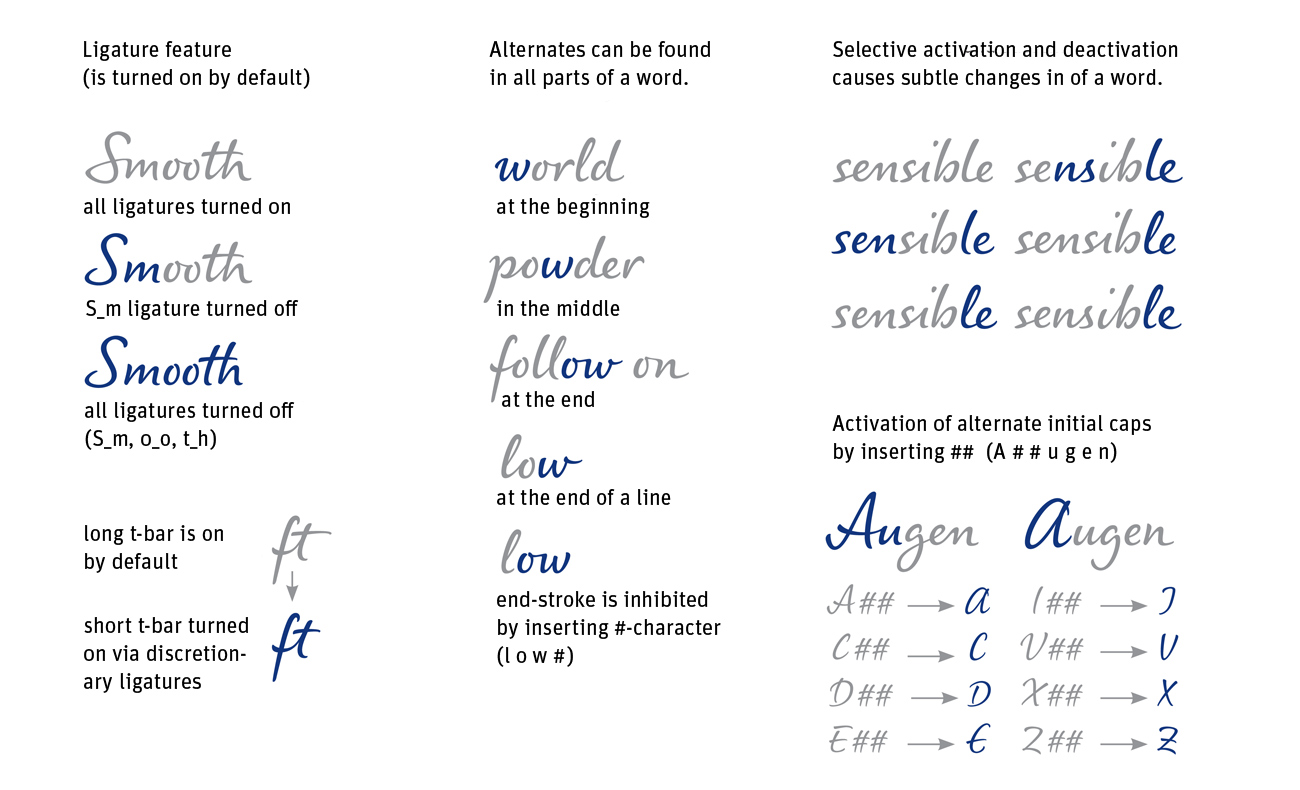 Ligature feature
(is turned on by default)
Smooth
all ligatures turned on
Smooth
S_m ligature turned off
Smooth
all ligatures turned off
(S_m, o_o, t_h)
long t-bar is on
by default
ft
short t-bar turned
on via discretion-
ary ligatures
ft
Alternates can be found
in all parts of a word.
world
at the beginning
powder
in the middle
follow on
at the end
low
at the end of a line
low
end-stroke is inhibited
by inserting #-character
(l o w #)
Selective activation and deactivation
causes subtle changes in of a word.
sensible sensible
sensible sensible
sensible sensible
Activation of alternate initial caps
by inserting ## (A # # u g e n)
Augen Augen
A## → A I## → I
C## → C U## → U
D## → D X## → X
E## → E Z## → Z